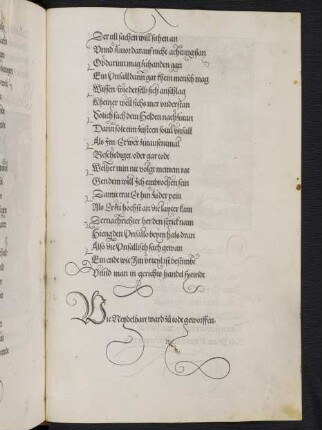 Der all sachen will sehen an
Vnnd zuuor darauf nicht achtung han
Ob darinn mag schanden gan
Ein Vnfall dann gar khem mensch mag
Wissen wie der selb sich anschlag
Kheiner well sichs mer vnderstan
Noch sich dem Helden nach
Dann so ein souil vnfall
Als Im Er wer zutausentmal
Beschediget oder gar todt
Welher nun nit volgt meinem rat
Gen dem will Ich embrochen sein
Damit trat Er hin zu der pein
Als Er zu höchst an die layter kam
Der nachrichter her den strick nam
Hieng den Vnfallo beym hals dran
Also die Vnfallisch sach gewan
Ein endt wie Im vrteyl ist bestimbt
Vnnd man in gerichts handel
Wie Neydelhart ward zu tode geworffen.